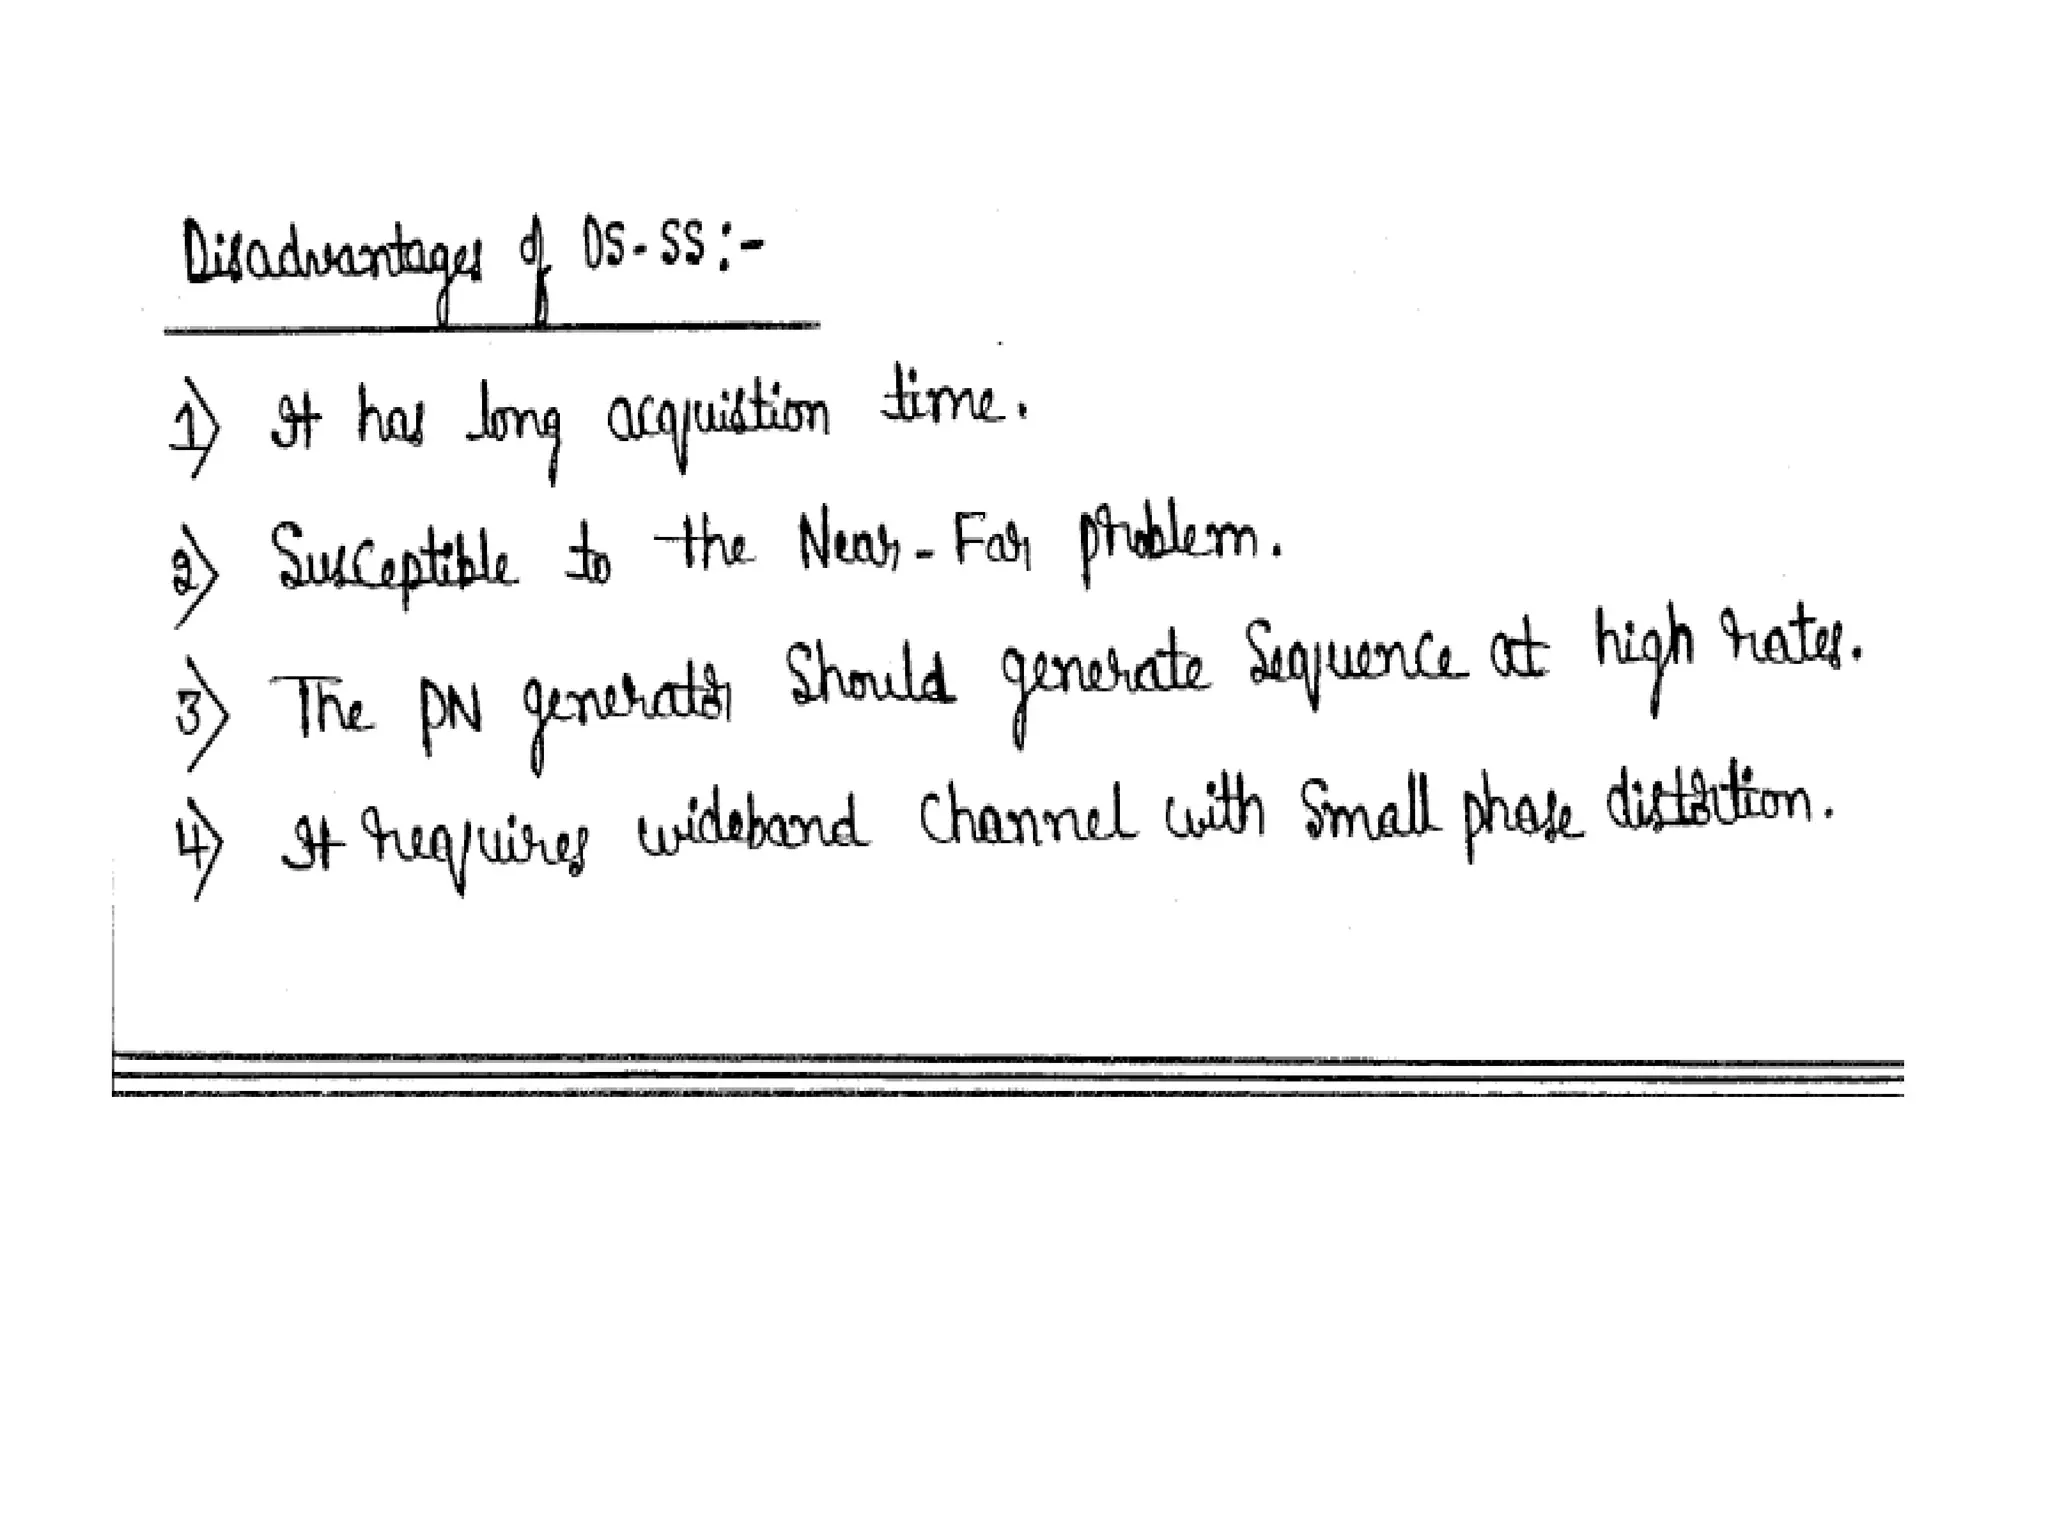 Disadvantages of DS-SS:-
1) It has long acquistion time.
2) Susceptible to the Near-Far problem.
3) The PN generator Should generate Sequence at high rates.
4) It requires wideband Channel with Small phase distortion.